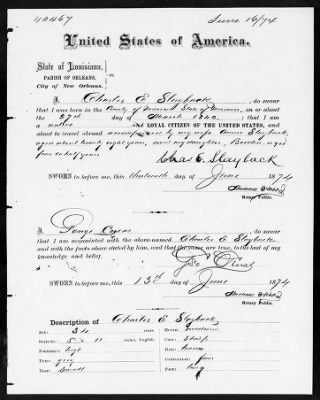 40467 June 16/74
United States of America.
State of Louisiana,
PARISH OF ORLEANS,
City of New Orleans.
I Charles E Slayback, do swear
that I was born in the County of State of Missouri, on
the 27th day of March 1840; that I am
a native and LOYAL CITIZEN OF THE UNITED STATES, and
about to travel abroad accompanied by my wife Annie Slayback,
aged about twenty eight years, and my daughter,
four & half years
Chas E. Slayback
SWORN to before me, this thirteenth day of June 1874
Notary Public.
I, George, do swear
that I am acquainted with the above-named Charles E Slayback
and with the facts above stated by him, and that the same are true, to the best of my
knowledge and belief.
SWORN to before me, this 13th day of June 1874
Notary Public.
Description of Charles E Slayback
AGE: 34 years. MOUTH: medium
STATURE: 5 " 11 inches, English. CHIN: sharp
FOREHEAD: high HAIR: brown
EYES: grey COMPLEXION: fair
NOSE: FACE: long